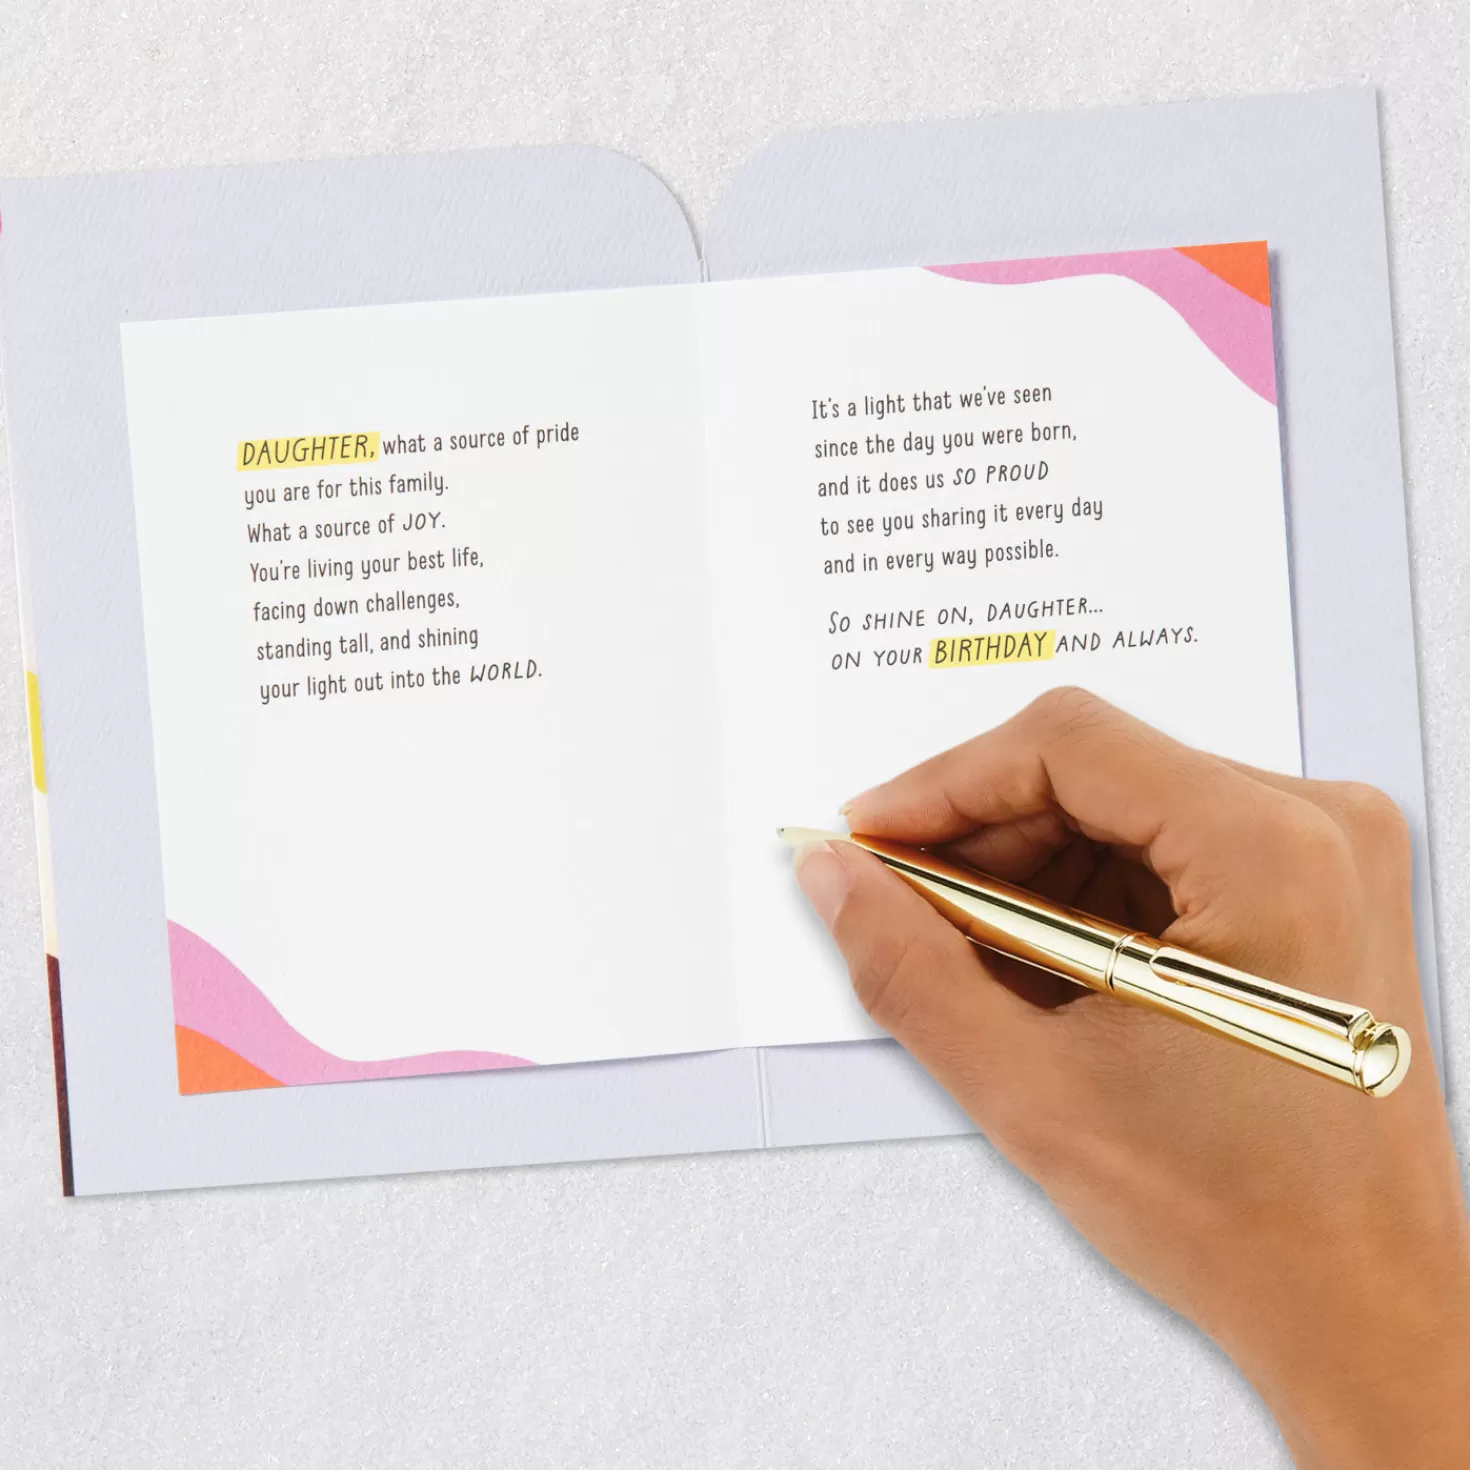 DAUGHTER, what a source of pride
you are for this family.
What a source of JOY.
You're living your best life,
facing down challenges,
standing tall, and shining
your light out into the WORLD.
It's a light that we've seen
since the day you were born,
and it does us SO PROUD
to see you sharing it every day
and in every way possible.
SO SHINE ON, DAUGHTER...
ON YOUR BIRTHDAY AND ALWAYS.